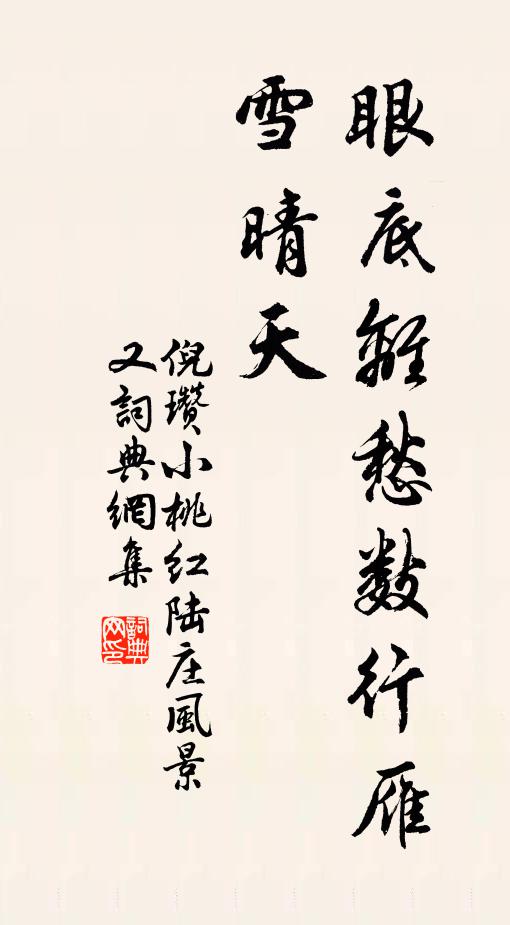 眼底離愁数行雁
雪晴天
倪瓚小桃红陆庄風景
又詞典網集
詞典网印